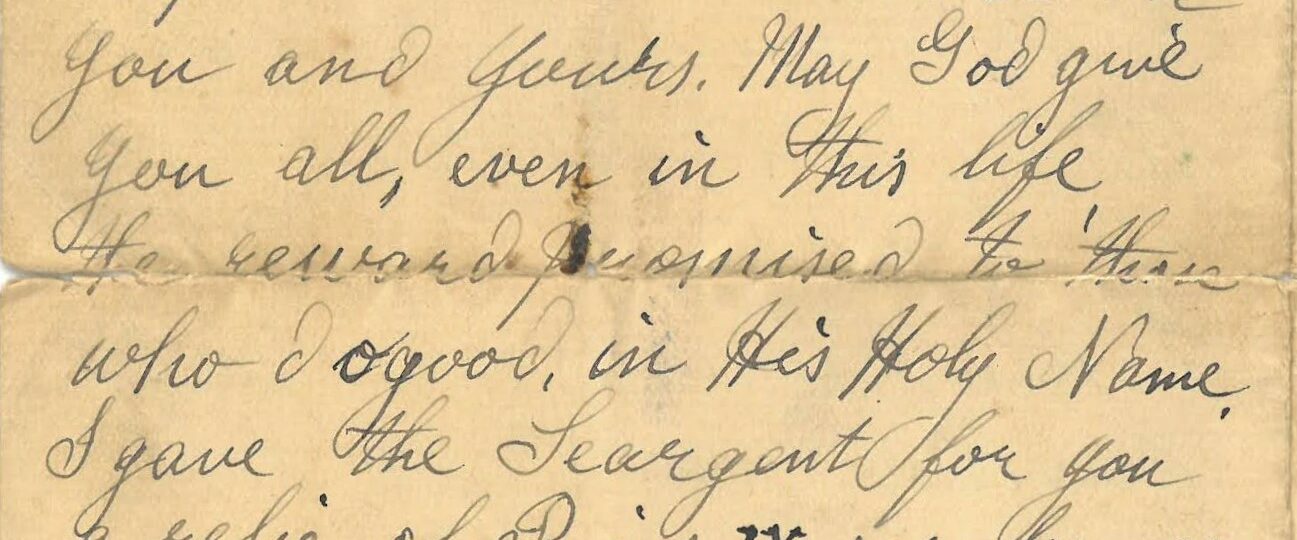 you and yours. May God give
you all, even in this life,
the reward promised to those
who do good, in His Holy Name.
I gave the Seargent for you
a relic of